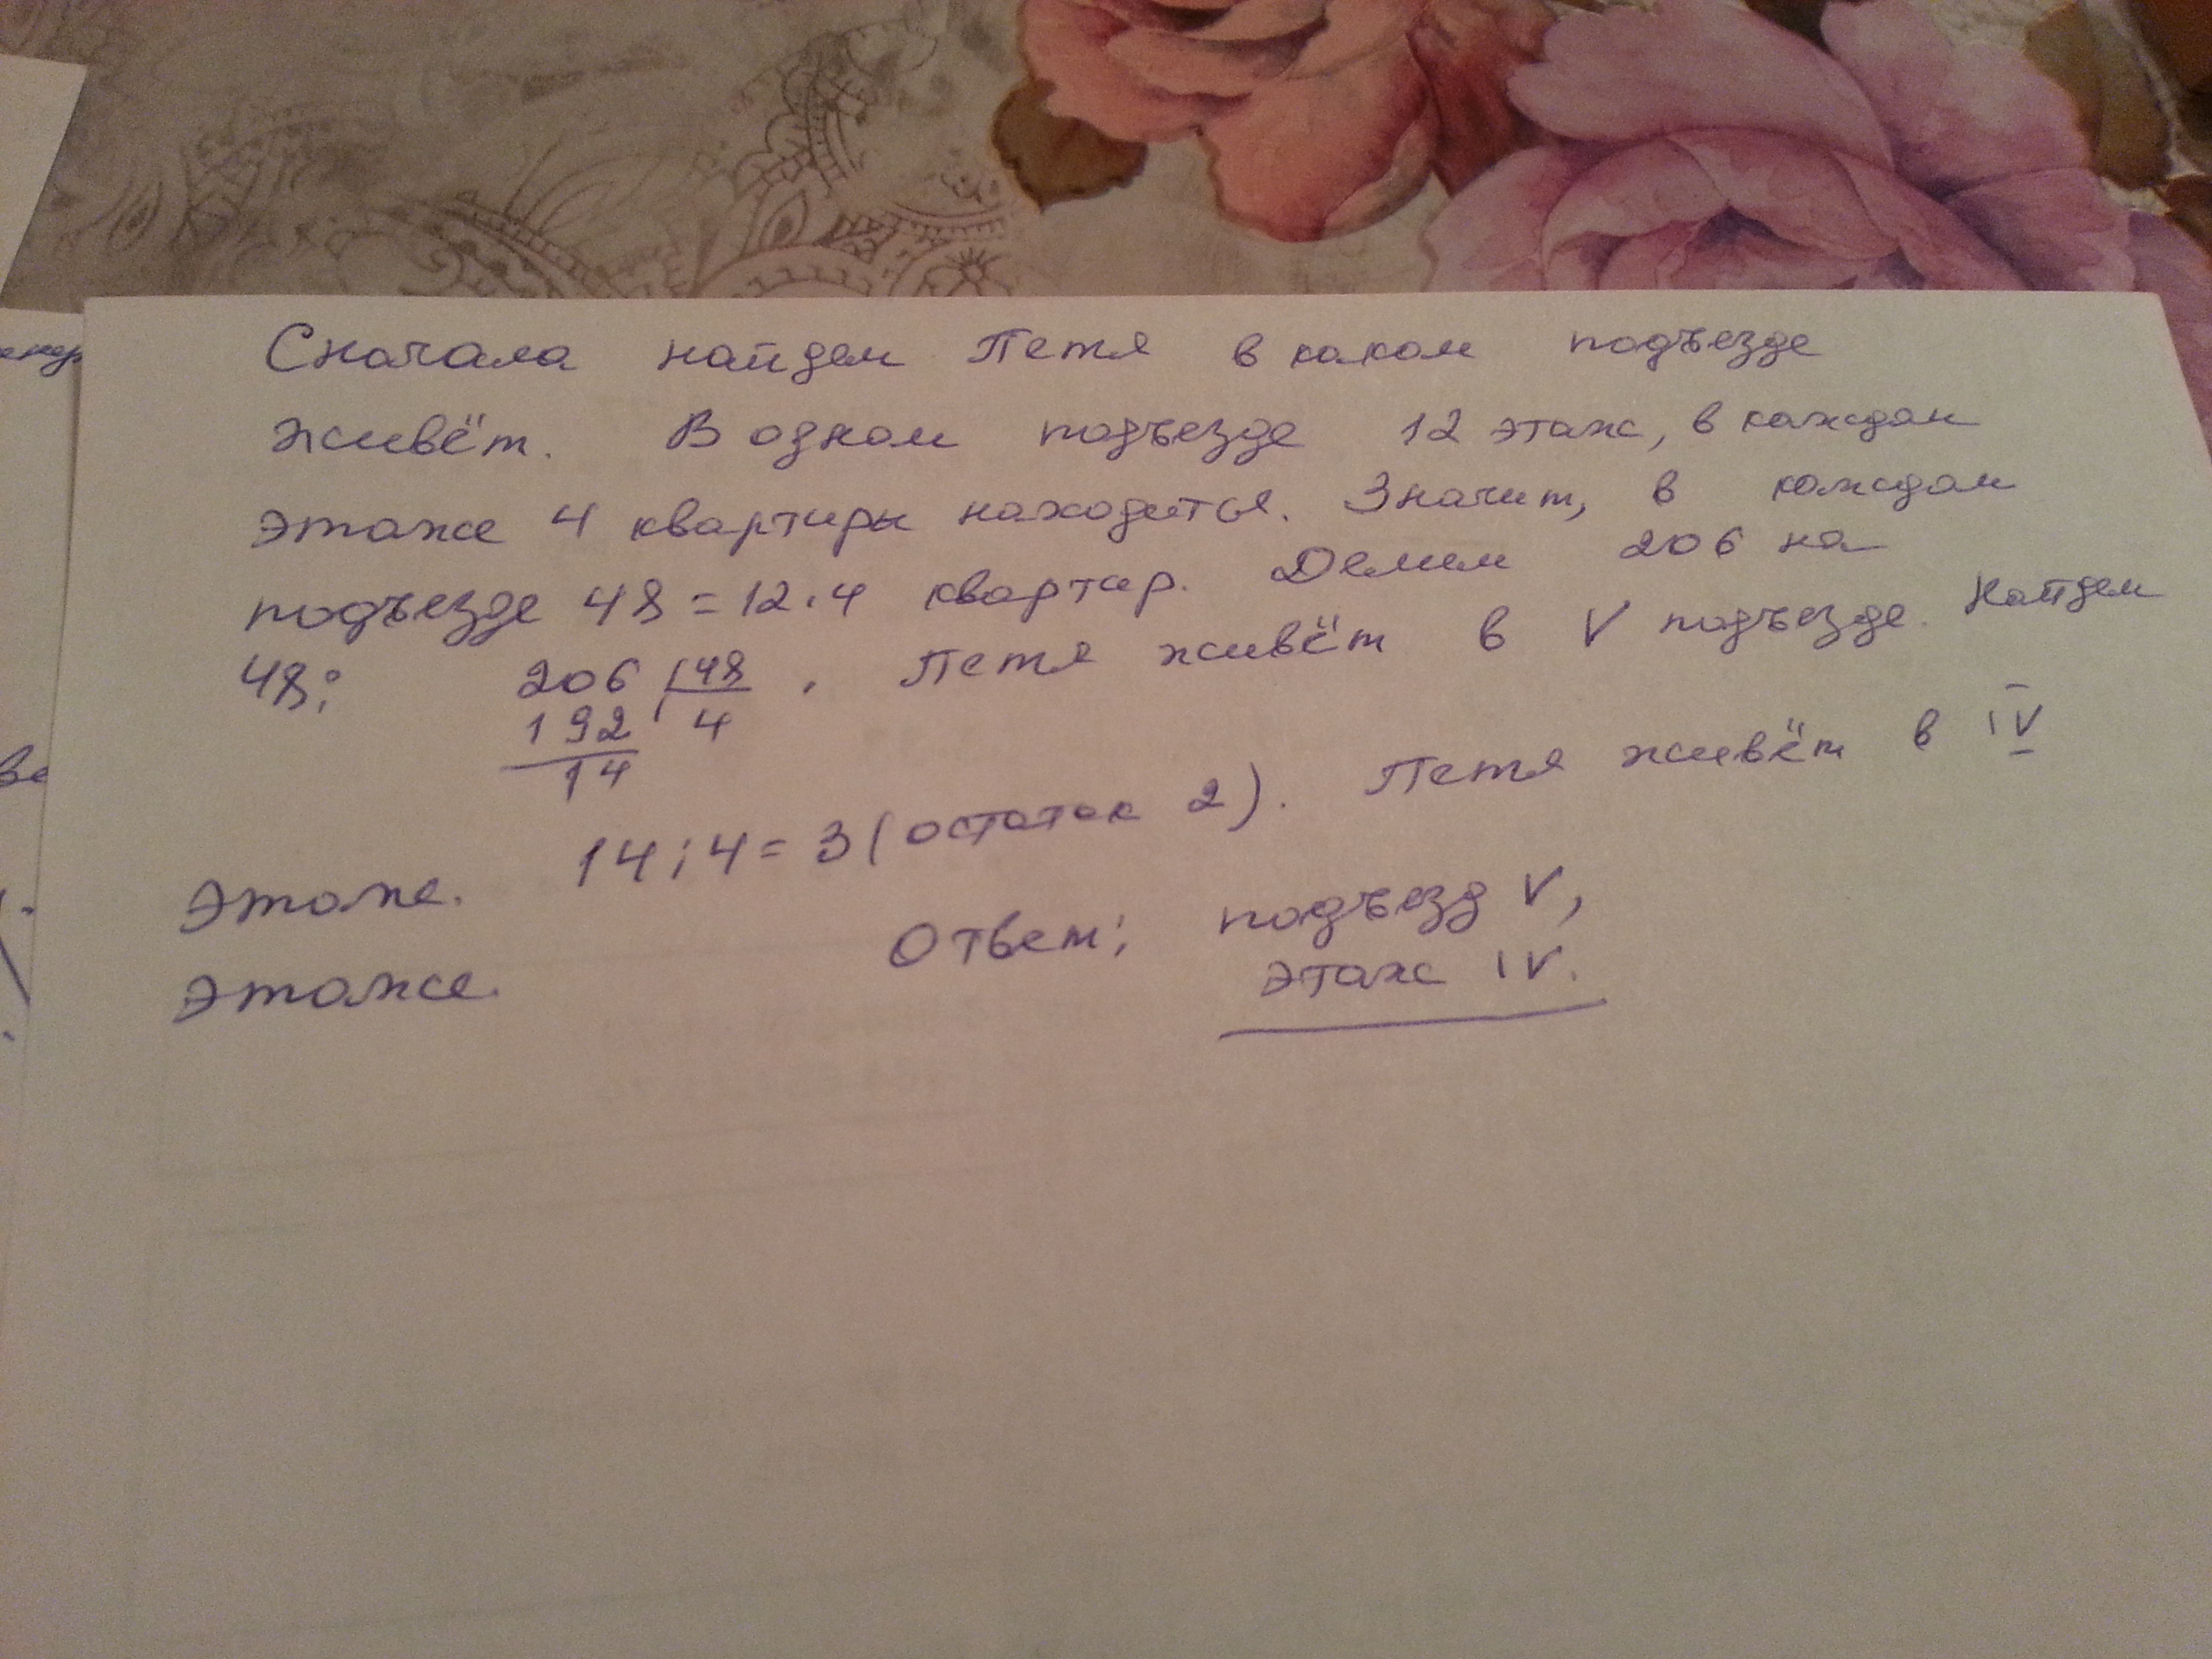 Сначала найдем Петя в каком подъезде
живёт. В одном подъезде 12 этаж, в каждом
этаже 4 квартиры находиться. Значит, в каждом
подъезде 48 = 12.4 квартир. Делим 206 на
48: 206 48 . Петя живёт в V подъезде. Найдем
192 4
14
этаже. 14:4= 3 (остаток 2). Петя живёт в IV
этаже. Ответ: подъезд V,
этаж IV.